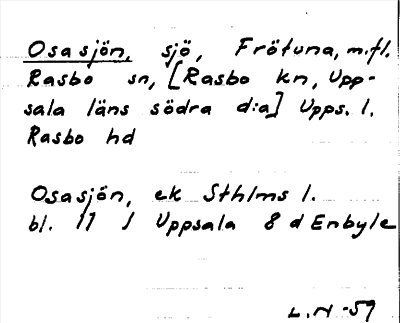 Osasjön, sjö, Frötuna, m.fl.
Rasbo sn, [Rasbo kn, Upp-
sala läns södra d:a] Upps. l.
Rasbo hd
Osasjön, ek Sthlms l.
bl. 11 J Uppsala 8 d Enbyle
L.N-59